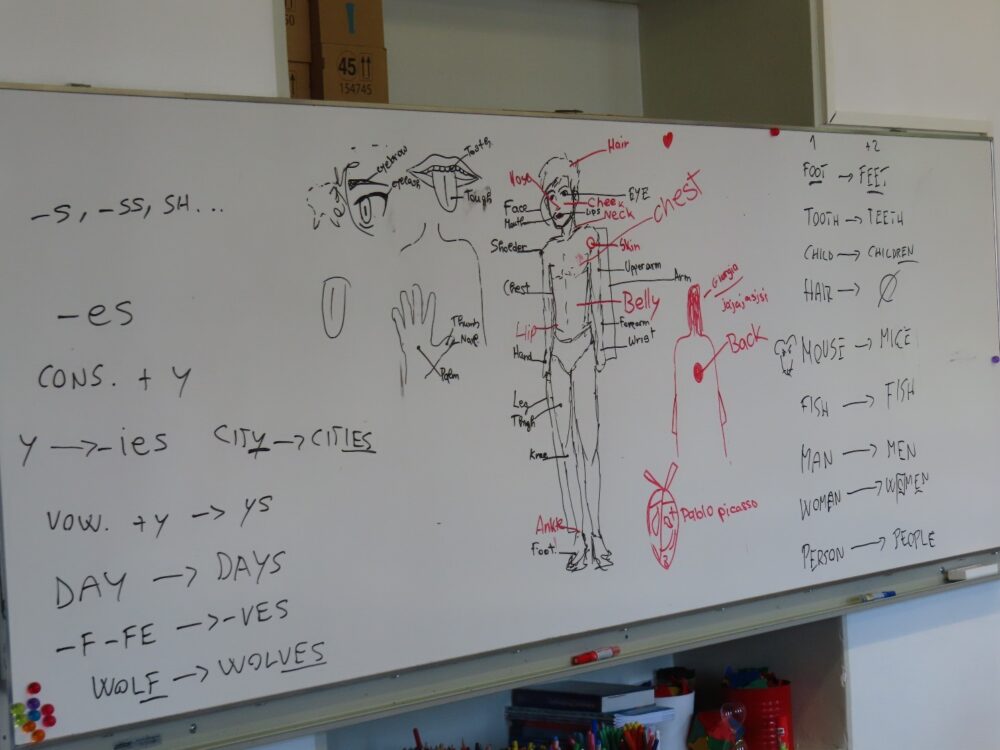 45
154745
-S, -SS, SH...
-es
CONS. + Y
Y → -ies CITY → CITIES
VOW. + Y → YS
DAY → DAYS
-F -FE → -VES
WOLF → WOLVES
eyebrow
eyelash
Tough
Thumb
Palm
Hair
Nose
EYE
Face
Cheek
Lips
Mouth
NECK
chest
Sholder
Skin
Upperarm
Arm
Chest
Belly
Hip
Forearm
Wrist
Hand
Leg
Thigh
Knee
Ankle
Foot
Giorgia
jajajasjsi
Back
Pablo picasso
1 +2
FOOT → FEET
TOOTH → TEETH
CHILD → CHILDREN
HAIR → Ø
MOUSE → MICE
FISH → FISH
MAN → MEN
WOMAN → WOMEN
PERSON → PEOPLE